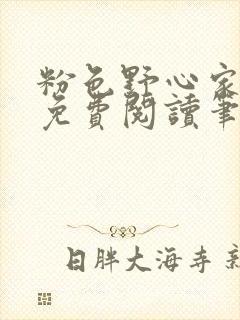 粉色野心家
免費閱讀筆
日胖大海寺